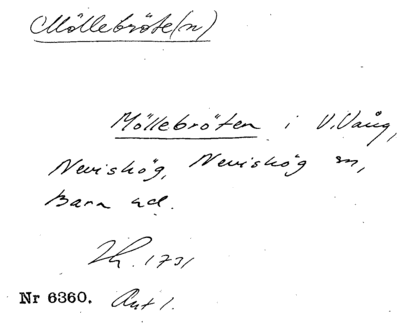 Möllebröte(n)
Möllebröten i V. Vång,
Nevishög, Nevishög sn,
Bara hd.
1731
Nr 6360. Art 1.